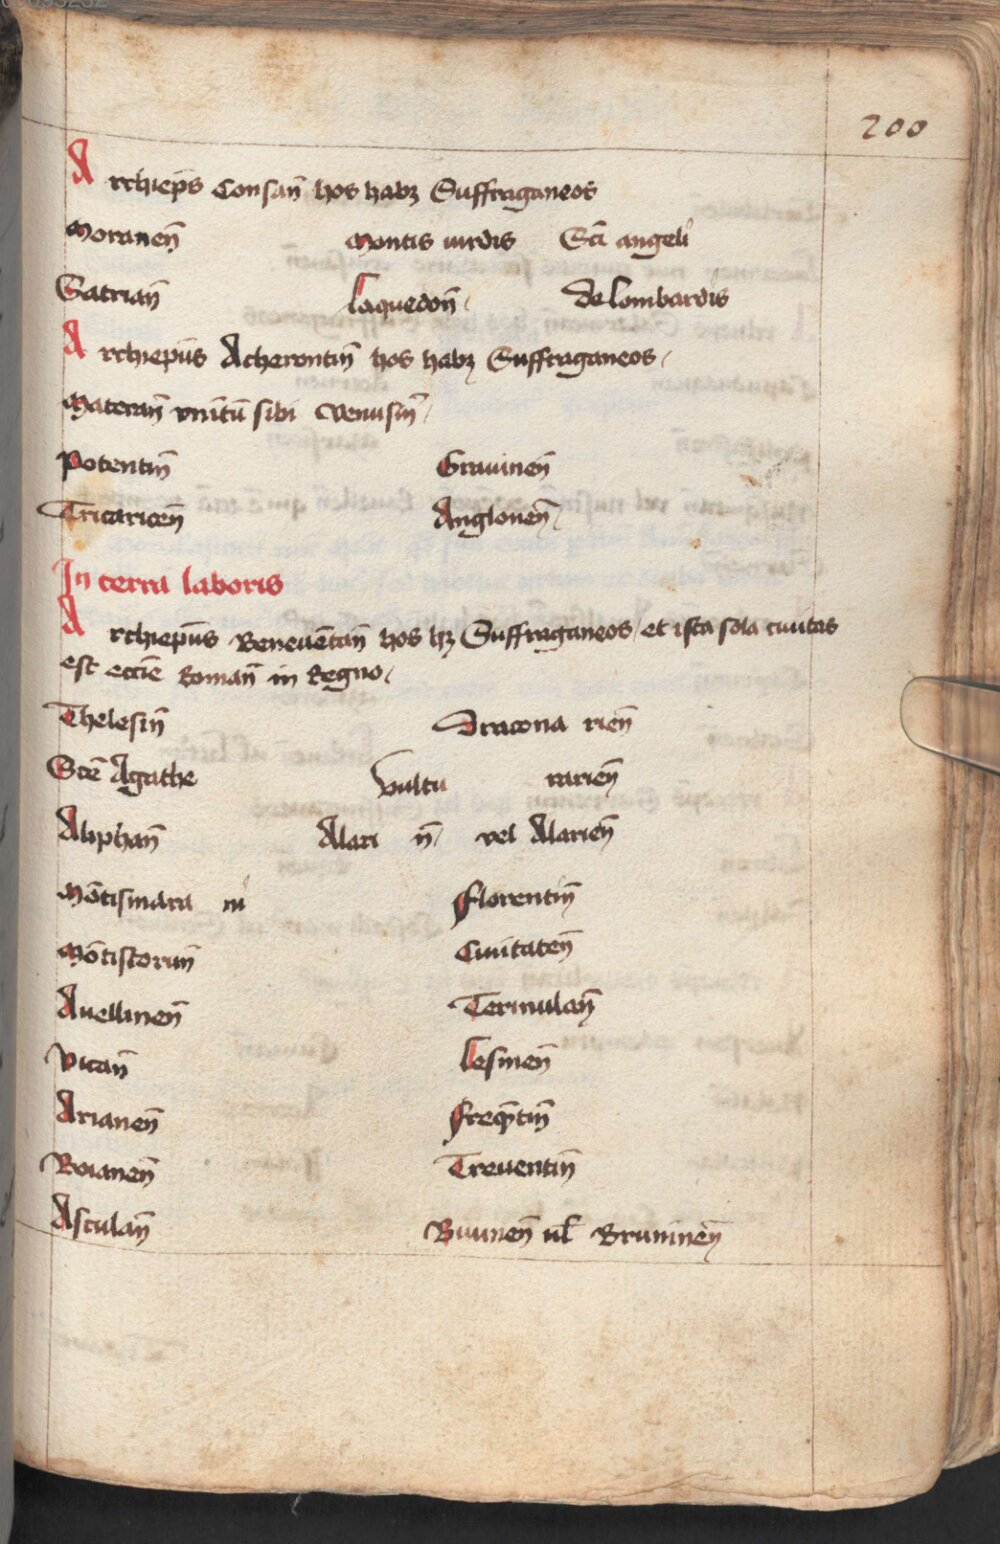 200
Archiep̄s Consan̄ hos habꝫ Suffraganeos
Moranen̄ Montis viridis Sc̄i angeli
Satrian̄ Laquedon̄ de lombardis
Archiepūs Acherontin̄ hos habꝫ Suffraganeos
Materan̄ vnitū sibi Venusin̄
Potentin̄ Grauinen̄
Tricaricen̄ Anglonen̄
In terra laboris
Archiepūs Beneuētan̄ hos hꝫ Suffraganeos et ista sola ciuitas
est eccīe Roman̄ in Regno
Thelesin̄ Dracona rien̄
Scē Agathe Vultu rarien̄
Aliphan̄ Alari n̄ vel Alarien̄
Mōtismara ni Florentin̄
Mōtistoruin̄ Ciuitaten̄
Auellinen̄ Termulan̄
Vican̄ Lesinen̄
Arianen̄ Freqn̄tin̄
Boianen̄ Treuentin̄
Asculan̄ Biuinen̄ ul̄ Bruninen̄